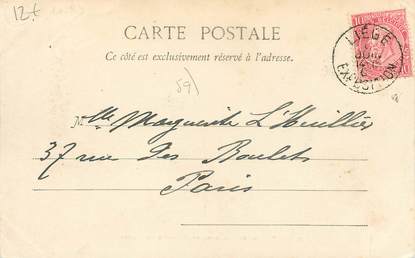 12€
CARTE POSTALE
Ce côté est exclusivement réservé à l'adresse.
LIÉGE
EXPOSITION
59)
Mlle Marguerite L'Huillier
37 rue des Boulets
Paris